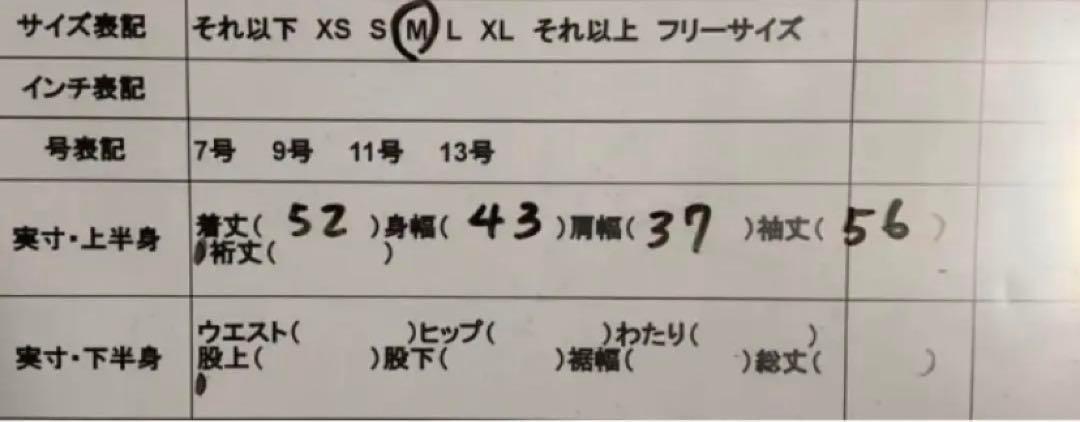 サイズ表記 それ以下 XS S M L XL それ以上 フリーサイズ
インチ表記
号表記 7号 9号 11号 13号
実寸・上半身 着丈( 52 )身幅( 43 )肩幅( 37 )袖丈( 56 )
裄丈( )
実寸・下半身 ウエスト( )ヒップ( )わたり( )
股上( )股下( )裾幅( )総丈( )